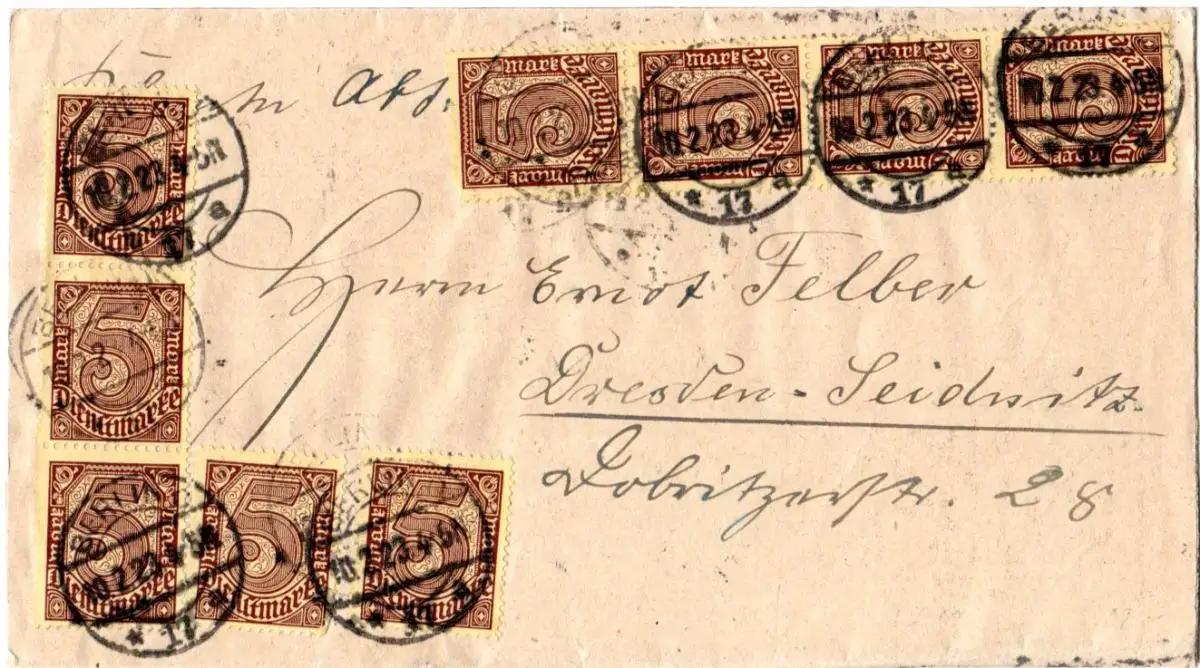 Abs.
5 Mark Dienstmarke
5 Mark Dienstmarke
5 Mark Dienstmarke
5 Mark Dienstmarke
10.2.23 4-5N
* 17 a
10.2.23 4-5N
* 17 a
10.2.23 4-5N
* 17
5 Mark Dienstmarke
10.2.23 4-5N
17 a
Herrn Ernst Felber
5 Mark Dienstmarke
Dresden-Seidnitz
Dobritzerstr. 28
5 Mark Dienstmarke
5 Mark Dienstmarke
5 Mark Dienstmarke
BERLIN
10.2.23 4-5N
* 17
BERLIN
10.2.23 4-5N